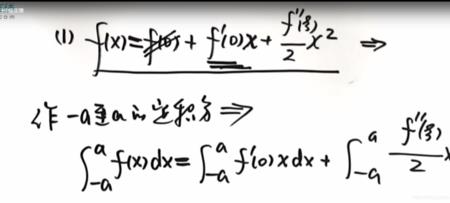 (1) f(x)=f(0)+f'(0)x+f''(ξ)/2 x² ⇒
作 -a至a的定积分 ⇒
∫_{-a}^{a} f(x)dx = ∫_{-a}^{a} f'(0)xdx + ∫_{-a}^{a} f''(ξ)/2 x